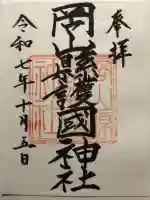 奉拝
岡山縣護國神社
令和七年十月五日